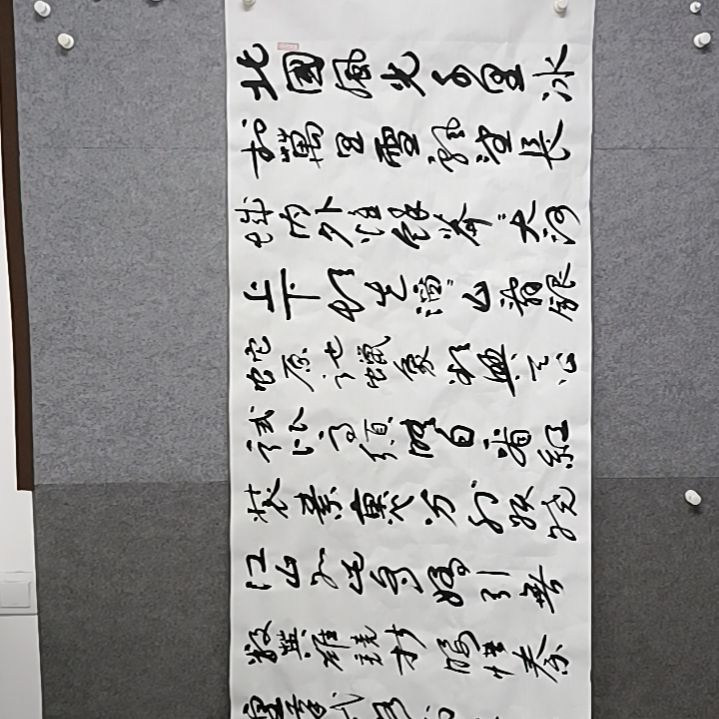 北國風光千里冰
封萬里雪飄望長
城内外惟餘莽〻大河
上下頓失滔〻山舞銀
蛇原馳蠟象欲與天公
試比高須晴日看紅
裝素裹分外妖嬈
江山如此多嬌引無
數英雄競折腰惜秦